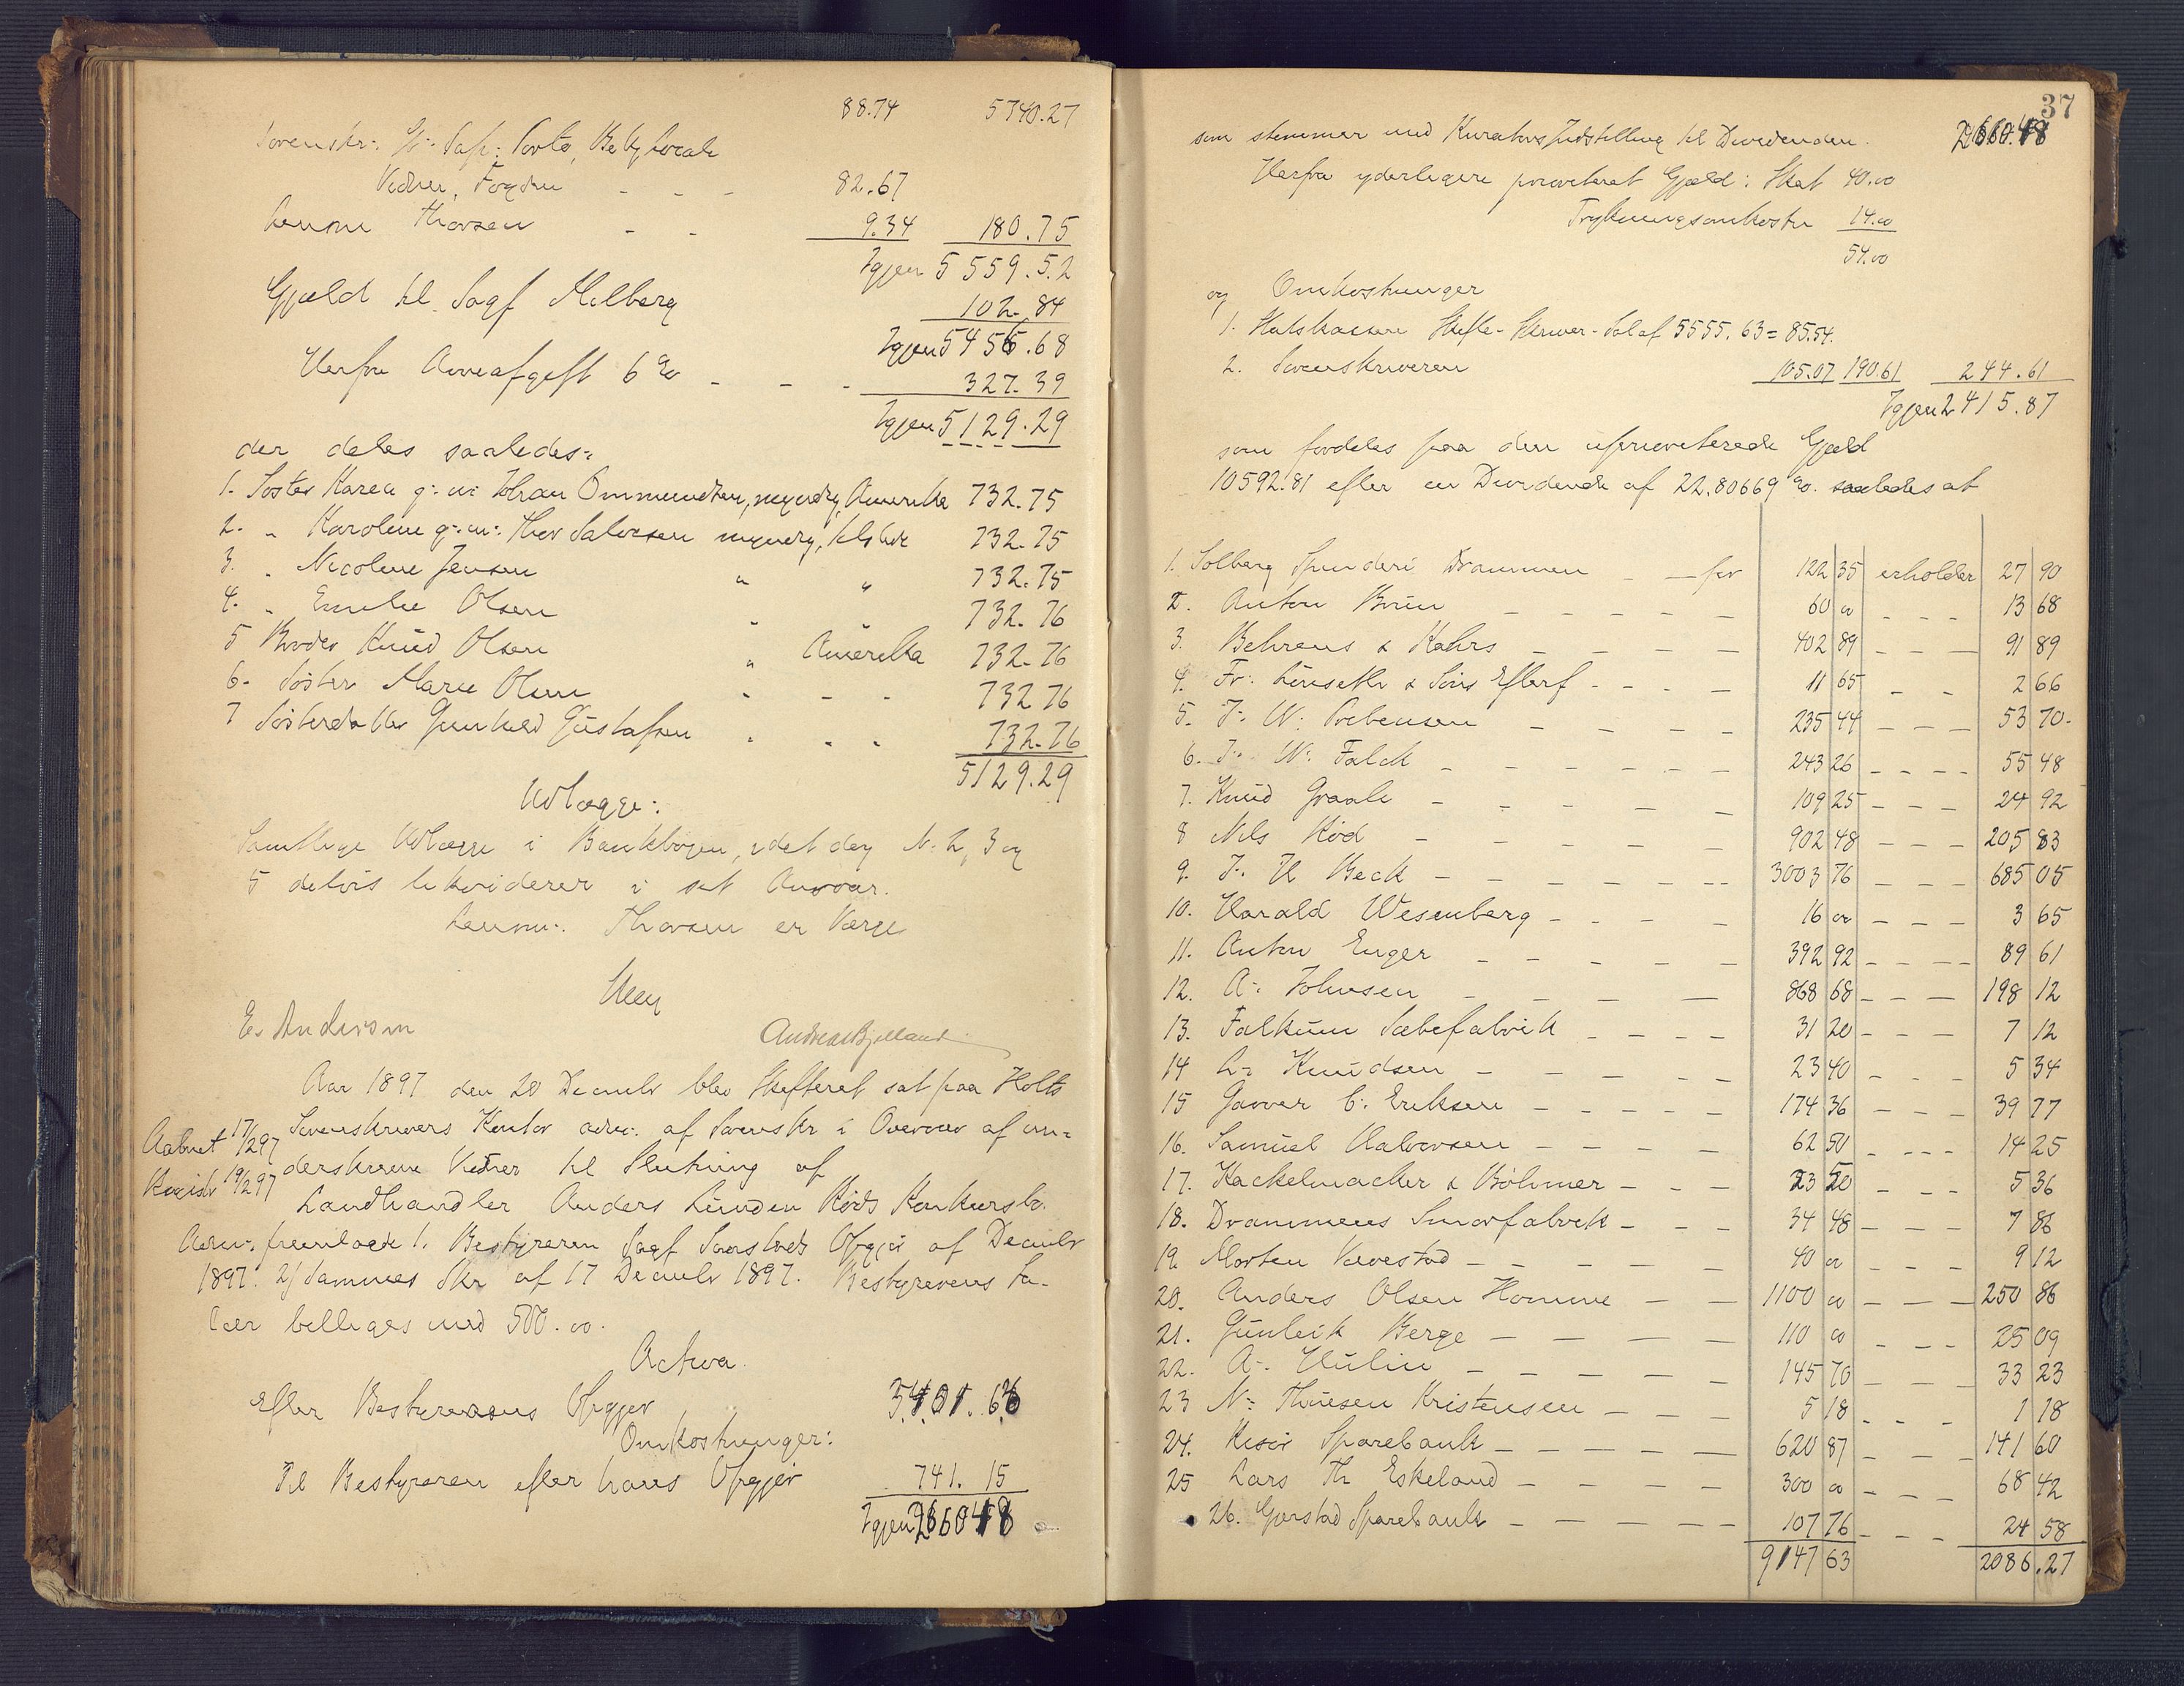 88.74 5740.27
Sorenskr: Gr: Pap: Porto, Bekg locale
Vidner, Fogden - - - 82.67
Lensm Thorsen - - 9.34 180.75
Igjen 5559.52
Gjæld til Sagf Melberg 102.84
Igjen 5456.68
Herfra Arveafgift 6 % - - - 327.39
Igjen 5129.29
der deles saaledes:
1. Søster Karen g: m: Johan Ommundsen, myndig, Amerika 732.75
2. " Karoline g: m: Thor Salvesen myndig, 732.75
3. " Nicoline Jensen " " 732.75
4. " Emilie Olsen " " 732.76
5 Broder Knud Olsen " Amerika 732.76
6. Søster Marie Olsen " - - 732 76
7 Søsterdatter Gunhild Gustafsen " " " 732.76
5129.29
Udlægge:
Samtlige Udlægge i Bankbøger, idet dog N: 2, 3 og
5 delvis likviderer i sit Ansvar.
Lensm: Thorsen er Værge
E. Anderson Andreas Bjelland
Aar 1897 den 20 December blev Skifteret sat paa Holts
Sorenskrivers Kontor adm: af Sorenskr i Overvær af un-
Aabnet 17/2 97
derskrevne Vidner til Slutning af
Registr 19/2 97
Landhandler Anders Lunden Røds Konkursbo.
Adm: fremlagde 1. Bestyreren Sagf Opgjør af Decembr
1897. 2/ Sammes Skr af 17 Decembr 1897. Bestyrerens Sa-
lær billiges med 500.00.
Activa.
Efter Bestyrerens Opgjør 3401.63
Omkostninger:
Til Bestyreren efter hans Opgjør 741.15
Igjen 2660.48
37
som stemmer med Kurators Indstilling til Dividenden. 2660.48
Herfra yderligere prioriteret Gjæld: Skat 40.00
Trykningsomkostn 14.00
54.00
og Omkostninger
1. Statskassen Skifte-Skriver-Sal af 5555.63 = 85.54.
2. Sorenskriveren 105.07 190.61 244.61
Igjen 2415.87
som fordeles paa den uprioriterede Gjæld
10592.81 efter en Dividende af 22.80669 %. saaledes at
1. Solberg Spinderi Drammen - - for 122 35 erholder 27 90
2. Anton Brun - - - - - 60 00 - - - 13 68
3. Behrens & Kahrs - - - - 402 89 - - - 91 89
4. Fr: Linseth & Søns Efterf - - - - 11 65 - - 2 66
5. J. W: Prebensen - - - - 235 44 - - - 53 70
6. J. W: Falck - - - - - - 243 26 - - - - 55 48
7. Knud Graale - - - - - 109 25 - - - 24 92
8 Nils Rød - - - - - - 902 48 - - - 205 83
9. J. H Beck - - - - - - - 3003 76 - - - 685 05
10. Harald Wesenberg - - - - 16 00 - - - 3 65
11. Anton Enger - - - - - 392 92 - - - - 89 61
12. A. Johnsen - - - - 868 68 - - - 198 12
13. Falkum Sæbefabrik - - - - 31 20 - - - 7 12
14 L: Knudsen - - - - - 23 40 - - - 5 34
15 Garver C: Eriksen - - - - - 174 36 - - - 39 77
16. Samuel Halvorsen - - - - 62 50 - - - - 14 25
17. Kackelmacker & Böhmer - - - 23 50 - - - 5 36
18. Drammens Smørfabrik - - - 34 48 - - - 7 86
19. Morten Vævestad - - - - - 40 00 - - - 9 12
20. Anders Olsen Homme - - 1100 00 - - - 250 86
21. Gunleik Berge - - - - 110 00 - - - 25 09
22. A. Hulin - - - - - - 145 70 - - - 33 23
23 N: Thuesen Kristensen - - - 5 18 - - - 1 18
24. Risør Sparebank - - - - - 620 87 - - - 141 60
25 Lars Th Eskeland - - - - 300 00 - - - 68 42
26. Gjerstad Sparebank - - - - - 107 76 - - - 24 58
9147 63 2086.27